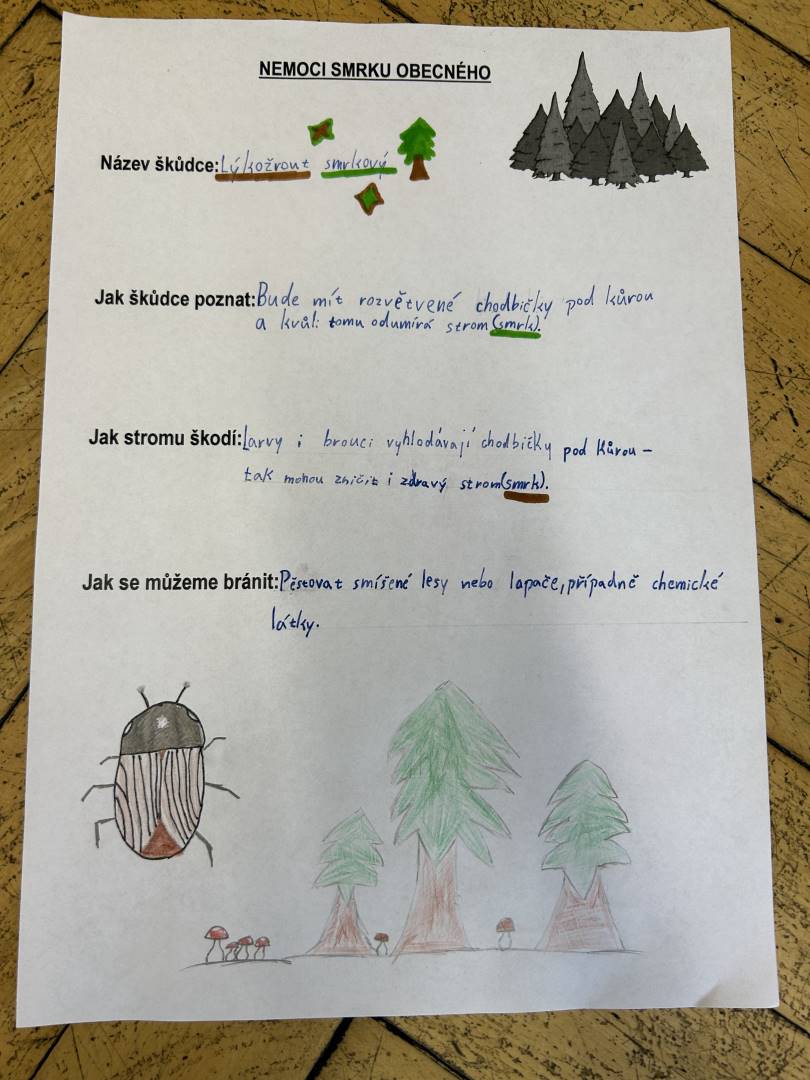 NEMOCI SMRKU OBECNÉHO
Název škůdce: Lýkožrout smrkový
Jak škůdce poznat: Bude mít rozvětvené chodbičky pod kůrou
a kvůli tomu odumírá strom (smrk).
Jak stromu škodí: Larvy i brouci vyhlodávají chodbičky pod kůrou –
tak mohou zničit i zdravý strom (smrk).
Jak se můžeme bránit: Pěstovat smíšené lesy nebo lapače, případně chemické
látky.